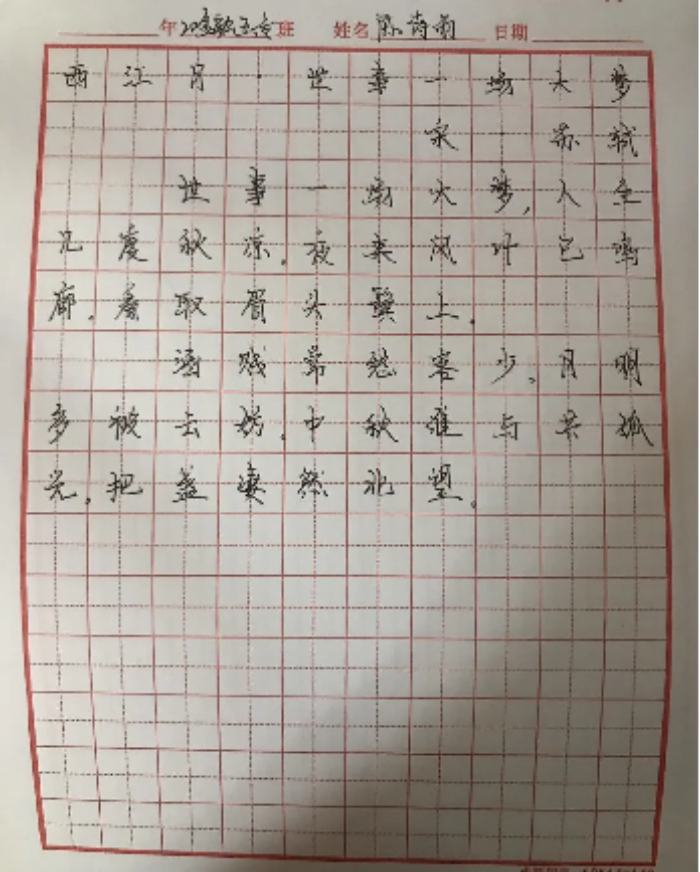 年 班 姓名 陈诗雨 日期
西江月·世事一场大梦
宋 苏轼
世事一场大梦,人生
几度秋凉。夜来风叶已鸣
廊。看取眉头鬓上。
酒贱常愁客少,月明
多被云妨。中秋谁与共孤
光,把盏凄然北望。